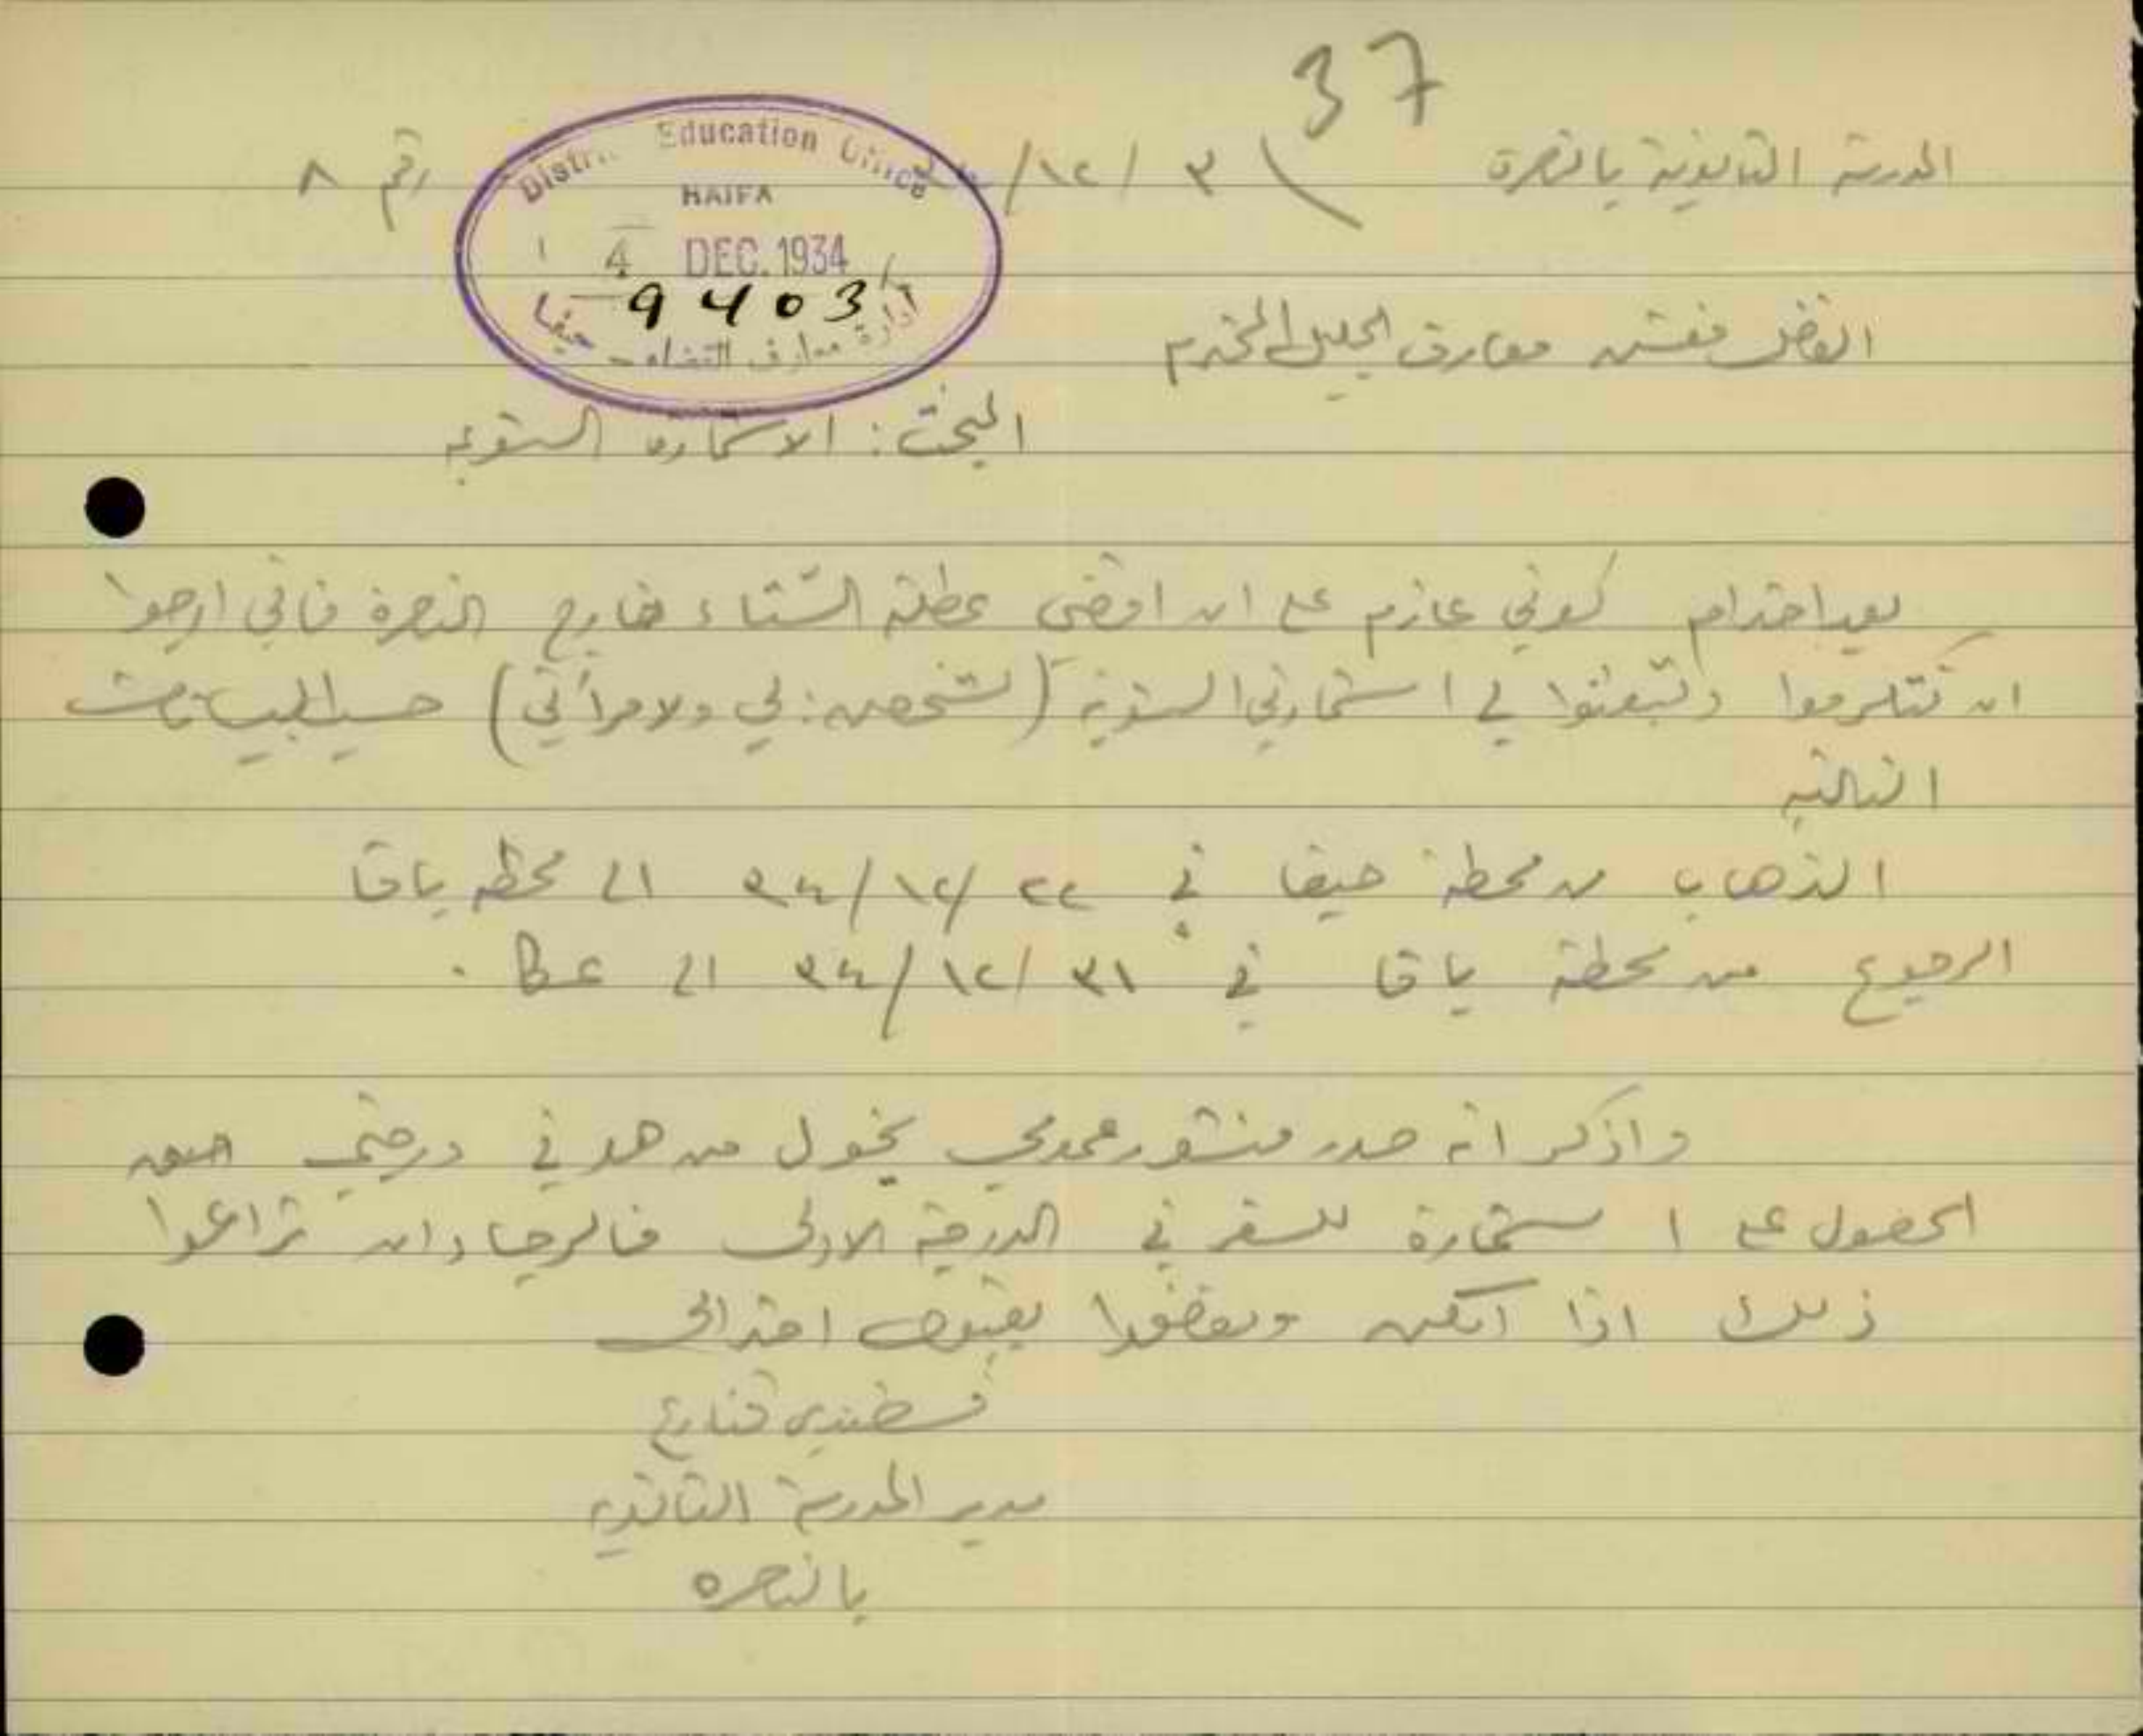 37
المدرسة الثانوية بالناصرة ٣ /١٢/ رقم ٨
District Education Office
HAIFA
4 DEC. 1934
9403
ادارة معارف القضاء - حيفا
الفاضل مفتش معارف الجليل المحترم
البحث: الاستماره السنويه
بعد احترام كوني عازم على ان اقضي عطلة الشتاء خارج الناصرة فاني ارجوا
ان تتكرموا وتبعثوا لي استمارتي السنوية (لشخصين: لي ولامرأتي) حسب البيانات
التالية
الذهاب من محطة حيفا في ٢٢ /١٢/ ٣٤ الى محطه يافا
الرجوع من محطة يافا في ٣١ /١٢/ ٣٤ الى عكا .
واذكر انه صدر منشور عمومي يخول من هو في درجتي حق
الحصول على استمارة للسفر في الدرجة الاولى فالرجاء ان تراعوا
ذلك اذا امكن وتفضلوا بقبول احترامي
قسطندي قنازع
مدير المدرسة الثانويه
بالناصره